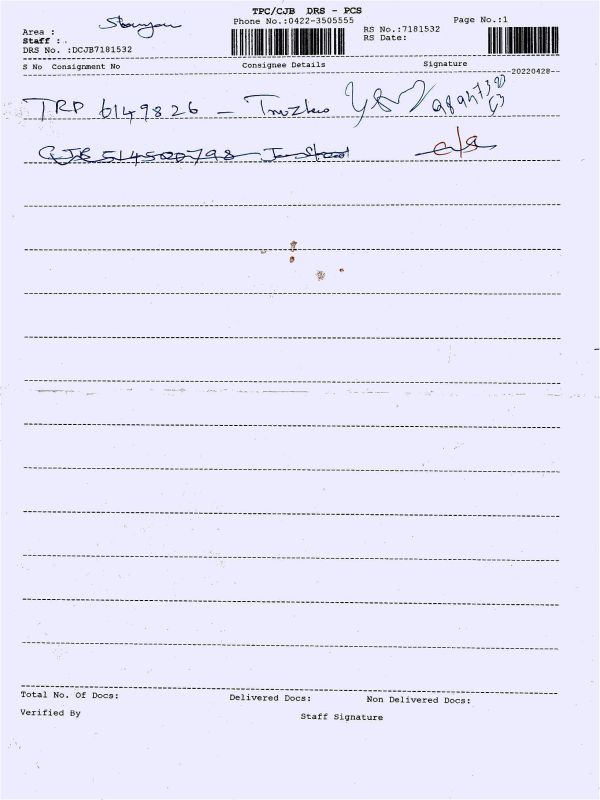 TPC/CJB DRS - PCS
Phone No.:0422-3505555
Page No.:1
Area :
RS No.:7181532
Staff :
RS Date:
DRS No. :DCJB7181532
S No Consignment No Consignee Details Signature
20220428
TRP 6149826 -
CJB 514500798
Total No. Of Docs: Delivered Docs: Non Delivered Docs:
Verified By Staff Signature